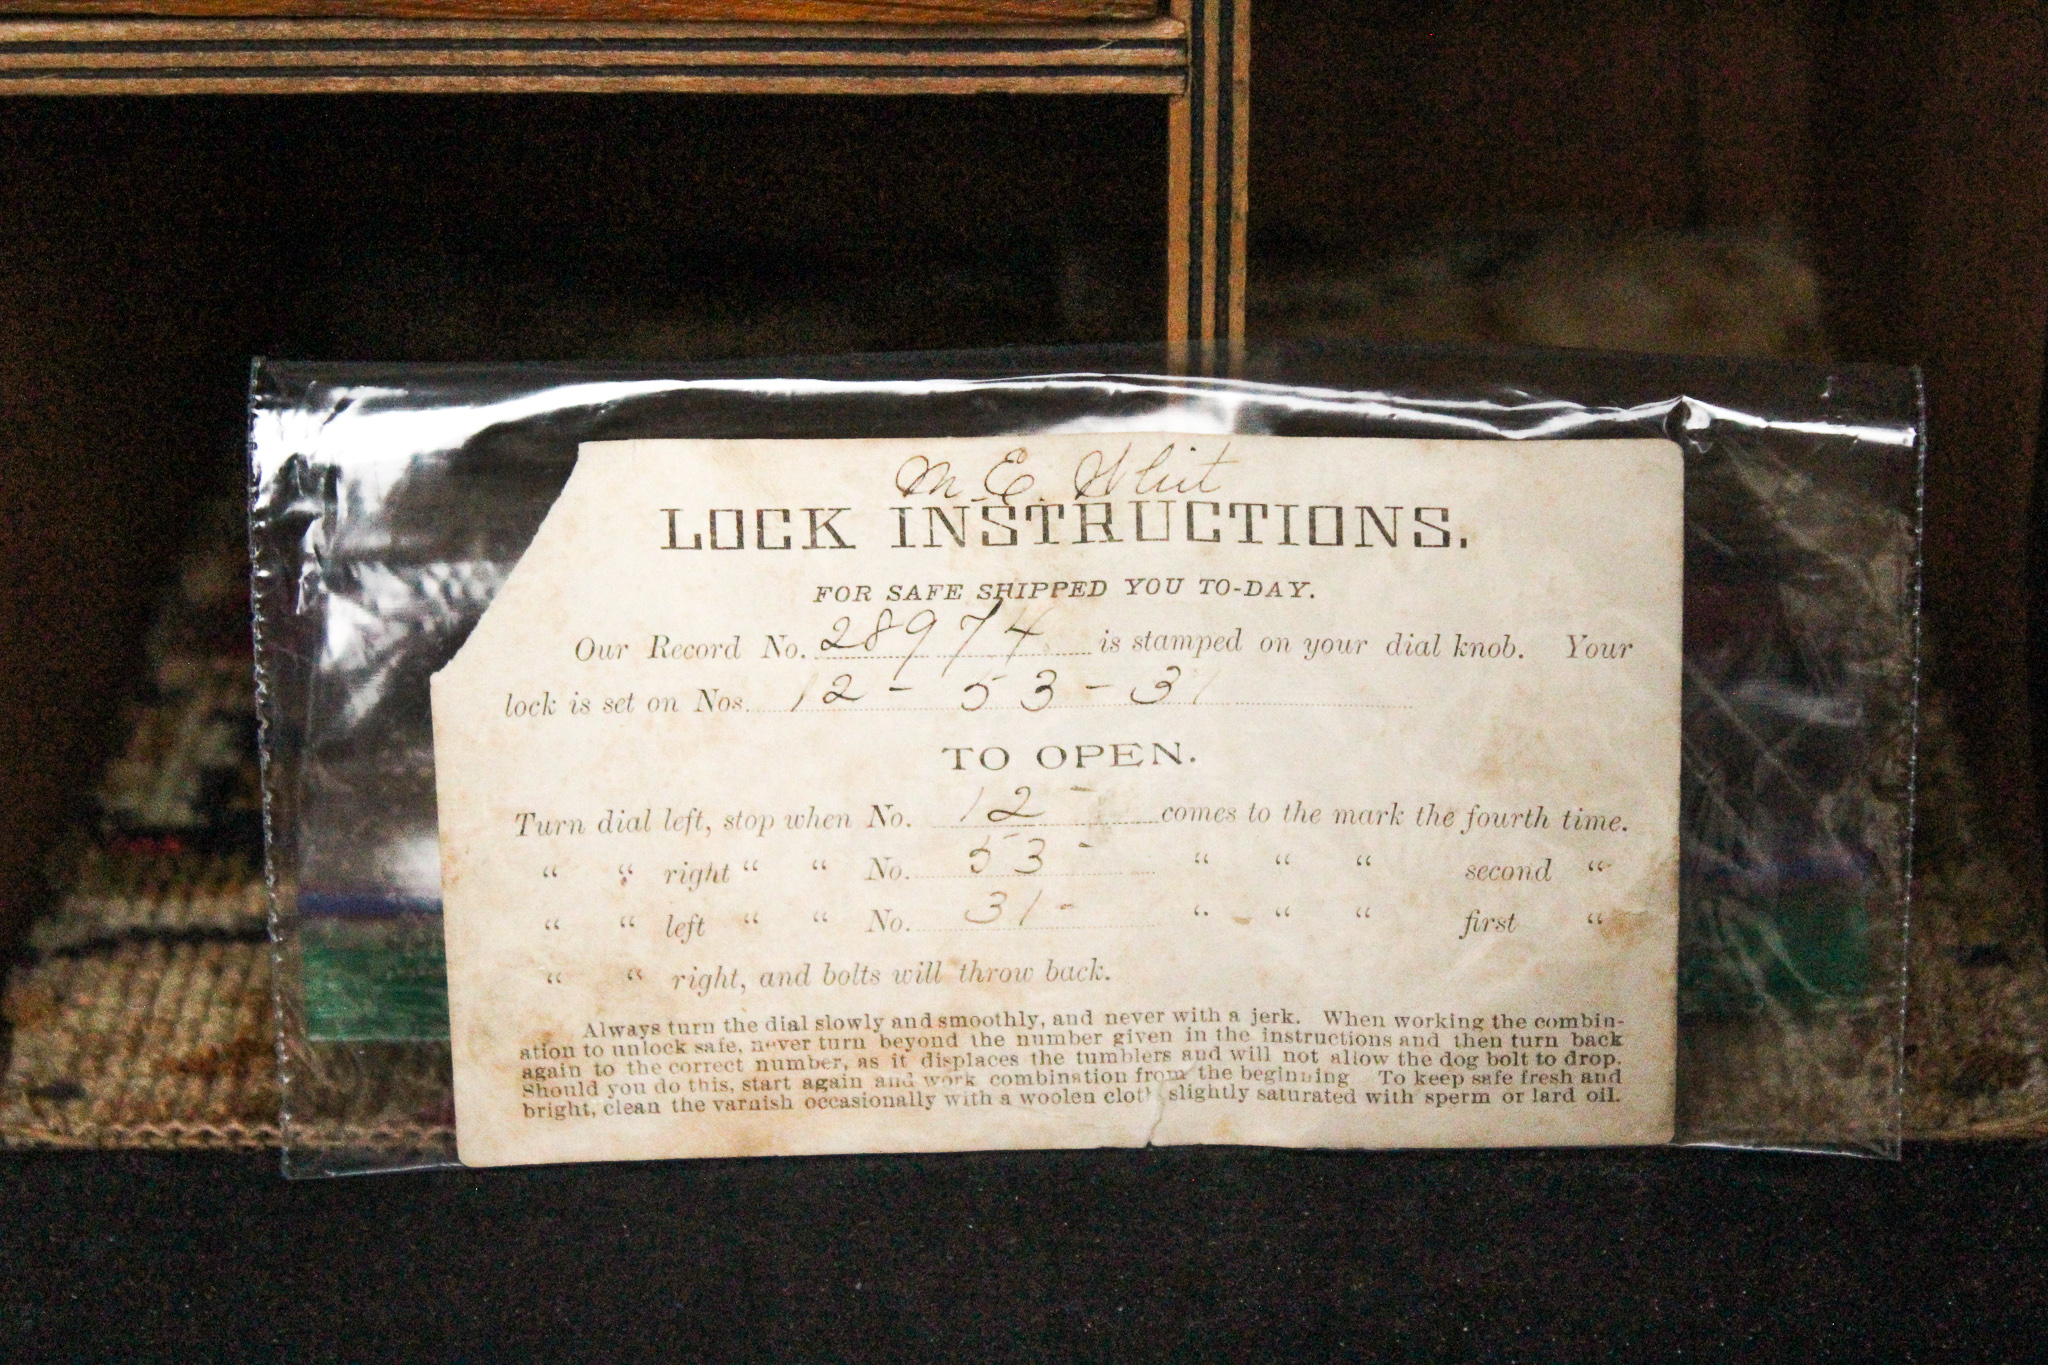 M. E. Whit
LOCK INSTRUCTIONS.
FOR SAFE SHIPPED YOU TO-DAY.
Our Record No. 28974 is stamped on your dial knob. Your
lock is set on Nos. 12 - 53 - 31
TO OPEN.
Turn dial left, stop when No. 12 - comes to the mark the fourth time.
“ “ right “ “ No. 53 - “ “ “ second “
“ “ left “ “ No. 31 - “ “ “ first “
“ “ right, and bolts will throw back.
Always turn the dial slowly and smoothly, and never with a jerk. When working the combin-
ation to unlock safe, never turn beyond the number given in the instructions and then turn back
again to the correct number, as it displaces the tumblers and will not allow the dog bolt to drop.
Should you do this, start again and work combination from the beginning To keep safe fresh and
bright, clean the varnish occasionally with a woolen cloth slightly saturated with sperm or lard oil.